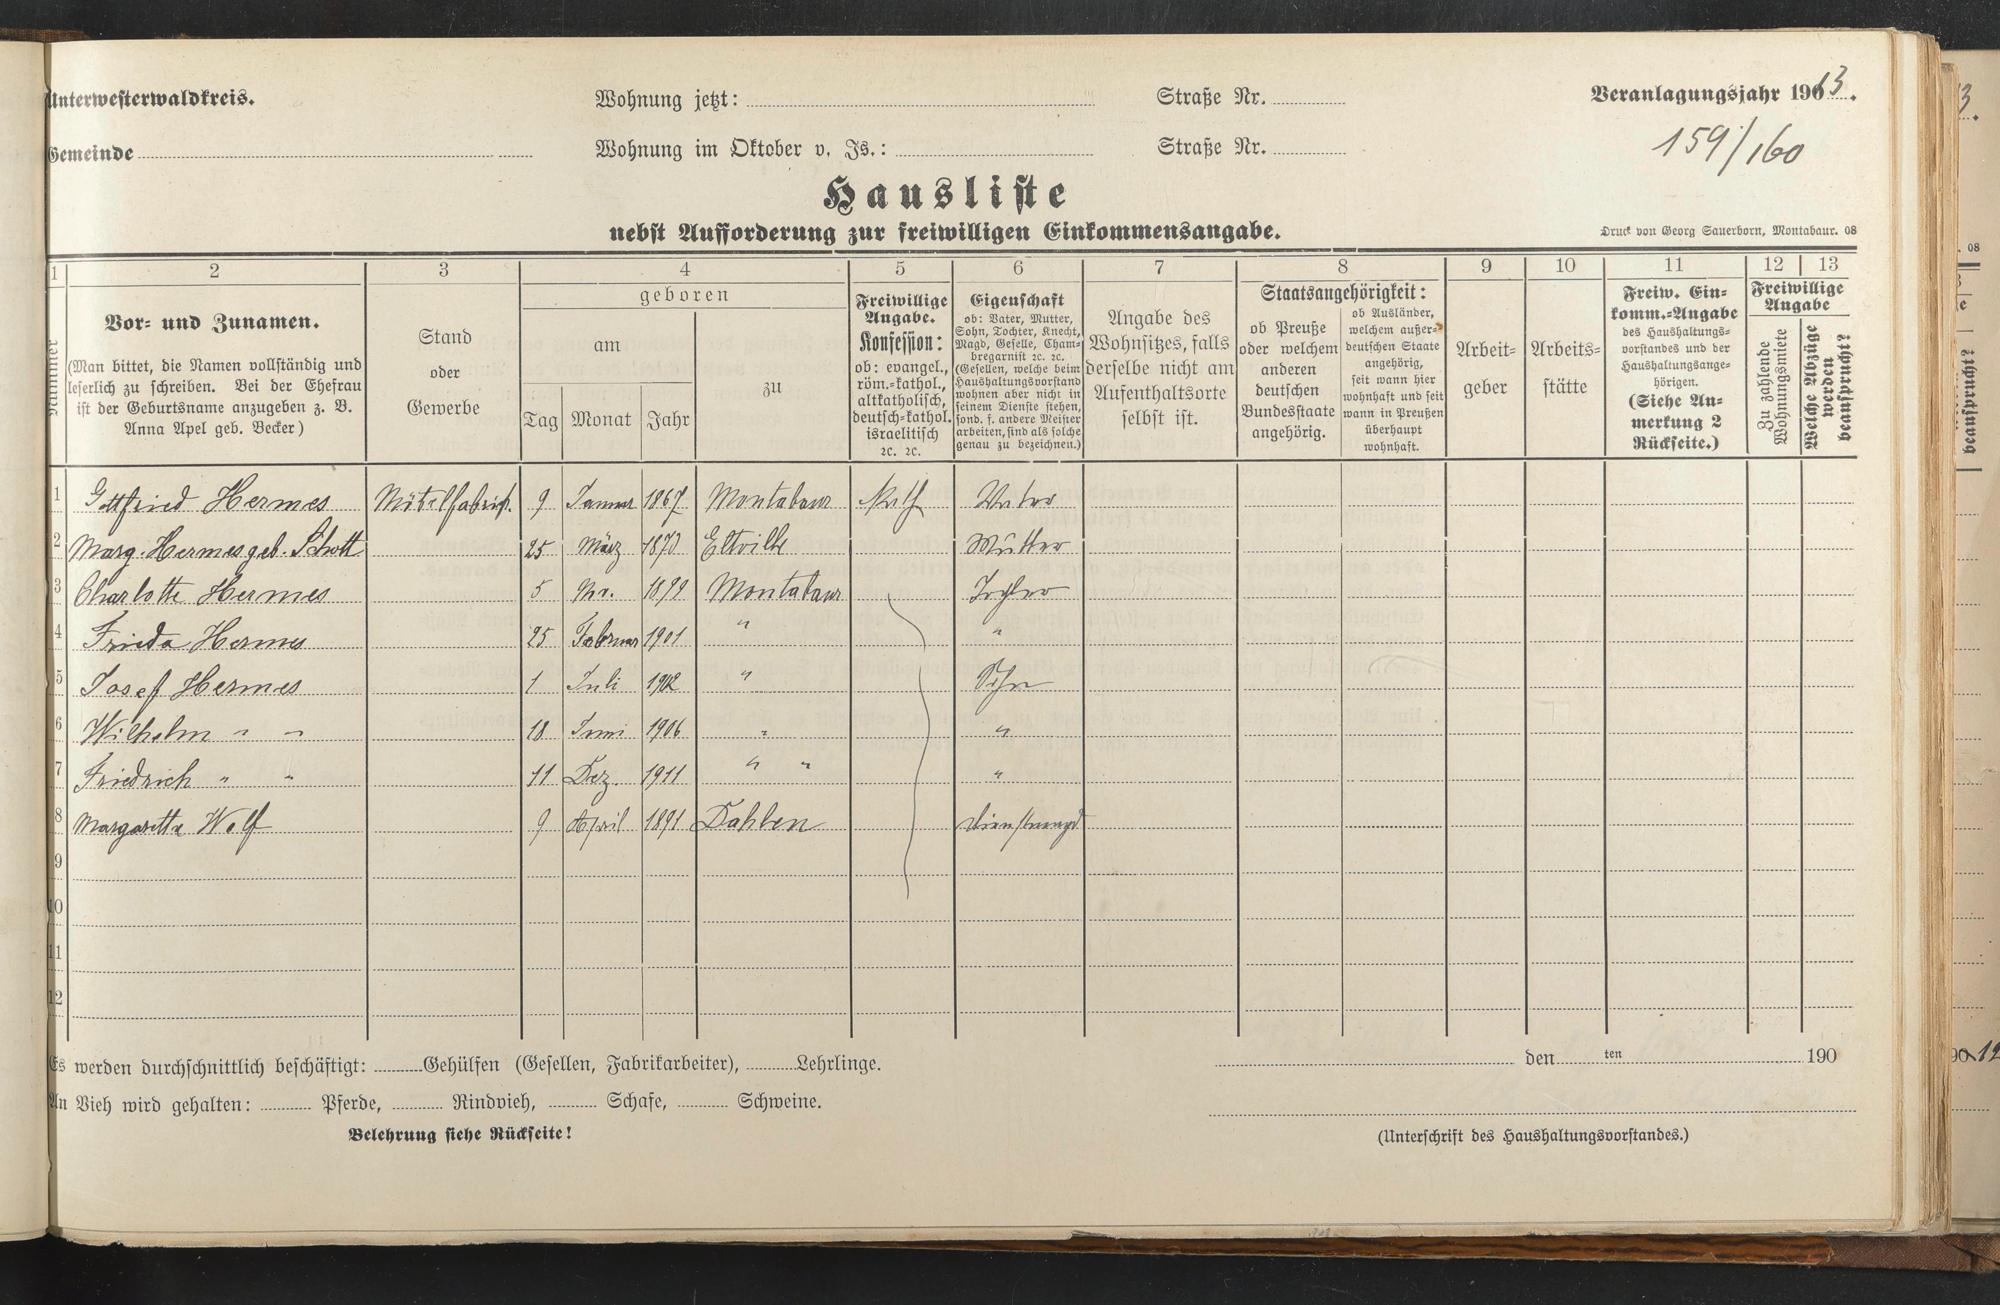 Unterwesterwaldkreis.
Wohnung jetzt: Straße Nr.
Veranlagungsjahr 1913.
Gemeinde
Wohnung im Oktober v. Js.: Straße Nr.
159/160
Hausliste
nebst Aufforderung zur freiwilligen Einkommensangabe.
Druck von Georg Sauerborn, Montabaur. 08
1 2 3 4 5 6 7 8 9 10 11 12 13
Nummer
Vor- und Zunamen.
(Man bittet, die Namen vollständig und
leserlich zu schreiben. Bei der Ehefrau
ist der Geburtsname anzugeben z. B.
Anna Apel geb. Becker)
Stand
oder
Gewerbe
geboren
am
Tag Monat Jahr
zu
Freiwillige
Angabe.
Konfession:
ob: evangel.,
röm.-kathol.,
altkatholisch,
deutsch-kathol.
israelitisch
ꝛc. ꝛc.
Eigenschaft
ob: Vater, Mutter,
Sohn, Tochter, Knecht,
Magd, Geselle, Cham-
bregarnist ꝛc. ꝛc.
(Gesellen, welche beim
Haushaltungsvorstand
wohnen aber nicht in
seinem Dienste stehen,
sond. f. andere Meister
arbeiten, sind als solche
genau zu bezeichnen.)
Angabe des
Wohnsitzes, falls
derselbe nicht am
Aufenthaltsorte
selbst ist.
Staatsangehörigkeit:
ob Preuße
oder welchem
anderen
deutschen
Bundesstaate
angehörig.
ob Ausländer,
welchem außer-
deutschen Staate
angehörig,
seit wann hier
wohnhaft und seit
wann in Preußen
überhaupt
wohnhaft.
Arbeit-
geber
Arbeits-
stätte
Freiw. Ein-
komm.-Angabe
des Haushaltungs-
vorstandes und der
Haushaltungsange-
hörigen.
(Siehe An-
merkung 2
Rückseite.)
Freiwillige
Angabe
Zu zahlende
Wohnungsmiete
Welche Abzüge
werden
beansprucht?
1 Gottfried Hermes Möbelfabrik. 9 Januar 1867 Montabaur Kath Vater
2 Marg. Hermes geb. Schott 25 März Eltville Mutter
3 Charlotte Hermes 5 1899 Montabaur Tochter
4 Frieda Hermes 25 Februar 1901 " "
5 Josef Hermes 1 Juli 1902 " Sohn
6 Wilhelm " " 18 Juni 1906 " "
7 Friedrich " " 11 Dez. 1911 " " "
8 Margaretha Wolf 9 April 1891 Dahlen Dienstmagd
9
10
11
12
Es werden durchschnittlich beschäftigt: Gehülfen (Gesellen, Fabrikarbeiter), Lehrlinge.
den ten 190
An Vieh wird gehalten: Pferde, Rindvieh, Schafe, Schweine.
Belehrung siehe Rückseite!
(Unterschrift des Haushaltungsvorstandes.)